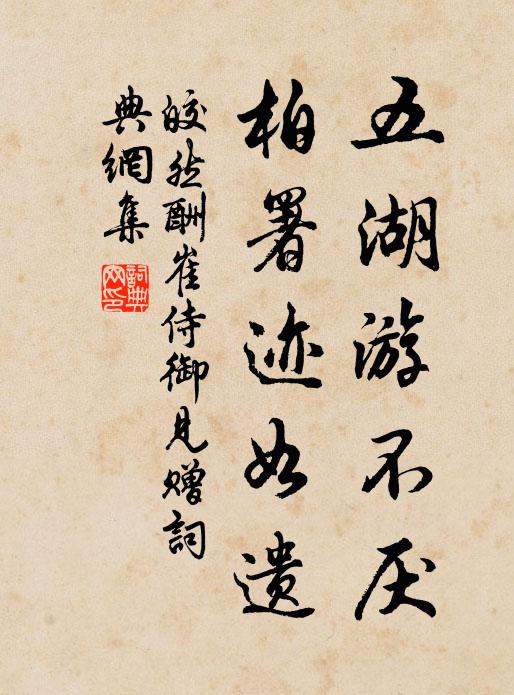 五湖游不厌
柏署迹如遗
皎然酬崔侍御见赠詞
典網集
詞典网印